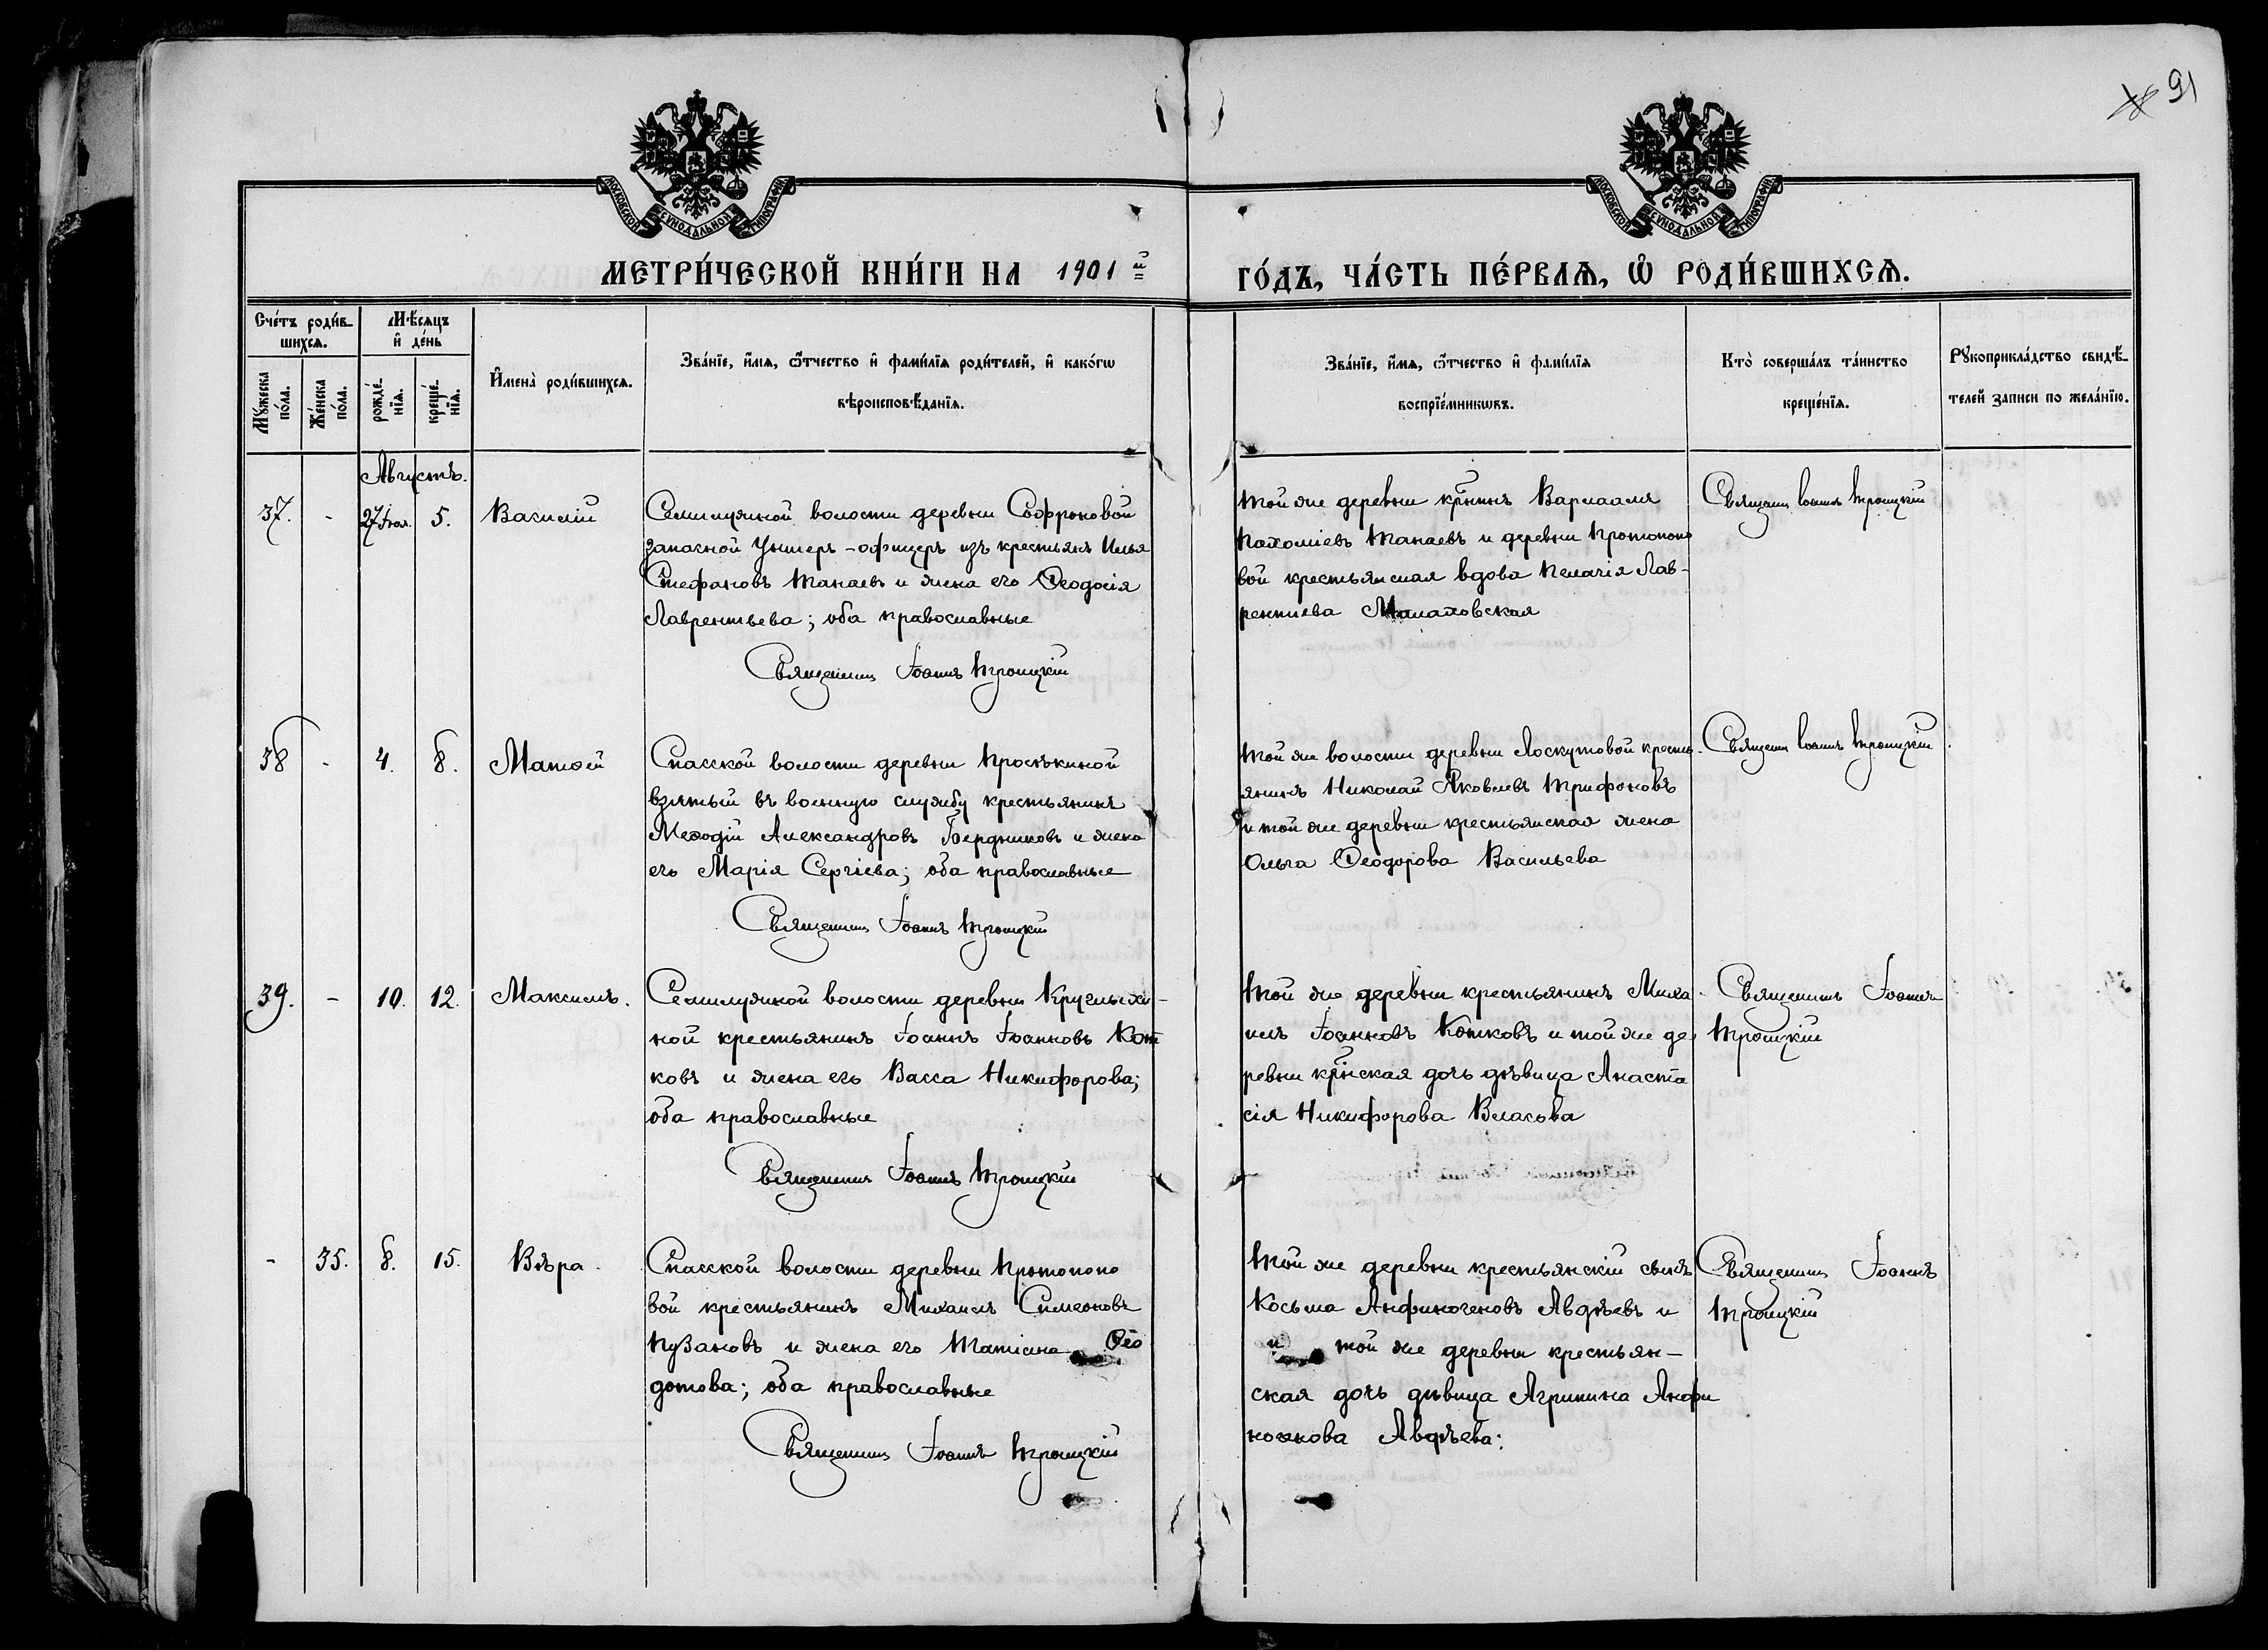 91
МОСКОВСКОЙ СУНОДАЛЬНОЙ ТИПОГРАФІИ
МОСКОВСКОЙ СУНОДАЛЬНОЙ ТИПОГРАФІИ
МЕТРИ́ЧЕСКОЙ КНИ́ГИ НА 1901й
ГО́ДЪ, ЧА́СТЬ ПЕ́РВАѦ, Ѡ҆ РОДИ́ВШИХСѦ.
Сче́тъ роди́в-
шихсѧ.
Мѣ́сѧцъ
и҆ де́нь
Мꙋ́жеска
по́ла.
Же́нска
по́ла.
рожде́-
нїѧ.
креще́-
нїѧ.
И҆мена̀ роди́вшихсѧ.
Зва́нїе, и҆́мѧ, ѻ҆́тчество и҆ фами́лїѧ роди́телей, и҆ како́гѡ
вѣроисповѣ́данїѧ.
Зва́нїе, и҆́мѧ, ѻ҆́тчество и҆ фами́лїѧ
воспрїе́мникѡвъ.
Кто̀ соверша́лъ та́инство
креще́нїѧ.
Рꙋкоприкла́дство свидѣ́-
телей записи по жела́нїю.
Августъ.
37. - 27 Іюл. 5. Василій
Семилужной волости деревни Софроновой
запасной Унтеръ-офицеръ изъ крестьянъ Илья
Стефановъ Танаевъ и жена его Ѳеодосія
Лаврентьева; оба православные
Священникъ Іоаннъ Троицкій
Той же деревни кр̃нинъ Варлаамъ
Пахоміевъ Танаевъ и деревни Протопопо
вой крестьянская вдова Пелагія Лав-
рентиева Малаховская
Священн Іоаннъ Троицкій
38 - 4. 8. Матѳей
Спасской волости деревни Просѣкиной
взятый въ военную службу крестьянинъ
Меѳодій Александровъ Бердниковъ и жена
его Марія Сергіева; оба православные
Священникъ Іоаннъ Троицкій
Той же волости деревни Лоскутовой кресть-
янинъ Николай Яковлевъ Трифоновъ
и той же деревни крестьянская жена
Ольга Ѳеодорова Васильева
Священн Іоаннъ Троицкій
39. - 10. 12. Максимъ.
Семилужной волости деревни Кругльіхи-
ной крестьянинъ Іоаннъ Іоанновъ Кот
ковъ и жена его Васса Никифорова;
оба православные
Священникъ Іоаннъ Троицкій
Той же деревни крестьянинъ Миха
илъ Іоанновъ Котковъ и той же де
ревни кр̃нская дочь дѣвица Анаста
сія Никифорова Власова
Священникъ Іоаннъ
Троицкій
- 35. 8. 15. Вѣра.
Спасской волости деревни Протопопо
вой крестьянинъ Михаилъ Симеоновъ
Пузановъ и жена его Татіана Ѳео
дотова; оба православные
Священникъ Іоаннъ Троицкій
Той же деревни крестьянскій сынъ
Косьма Анфиногеновъ Авдѣевъ и
и той же деревни крестьян-
ская дочь дѣвица Агрипина Анфи
ногенова Авдѣева:
Священникъ Іоаннъ
Троицкій